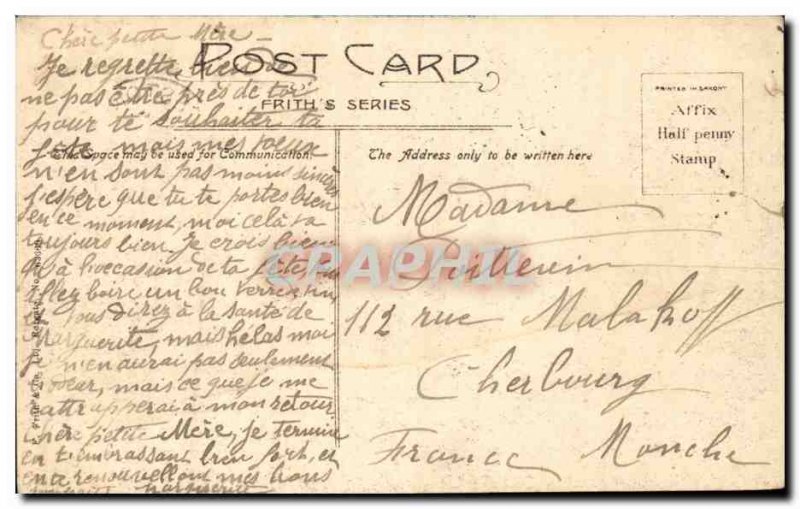 Chère petite Mère _
Je regrette bien de
ne pas être près de toi
pour te souhaiter ta
fête mais mes voeux
n'en sont pas moins sincères
J'espère que tu te portes bien
en ce moment, moi celà va
toujours bien Je crois bien
qu'à l'occasion de ta fête,
allez boire un bon verre
vous direz à la santé de
Marguerite, mais hélas moi
je n'en aurai pas seulement
mais ce que je me
rattrapperai à mon retour
Chère petite Mère, je termine
en t'embrassant bien fort, et
en te renouvellant mes bons
souhaits Marguerite
POST CARD
FRITH'S SERIES
This Space may be used for Communication.
The Address only to be written here
PRINTED IN SAXONY
Affix
Half penny
Stamp
Madame
Poillevin
112 rue Malakoff
Cherbourg
France Manche
CPAPHIL